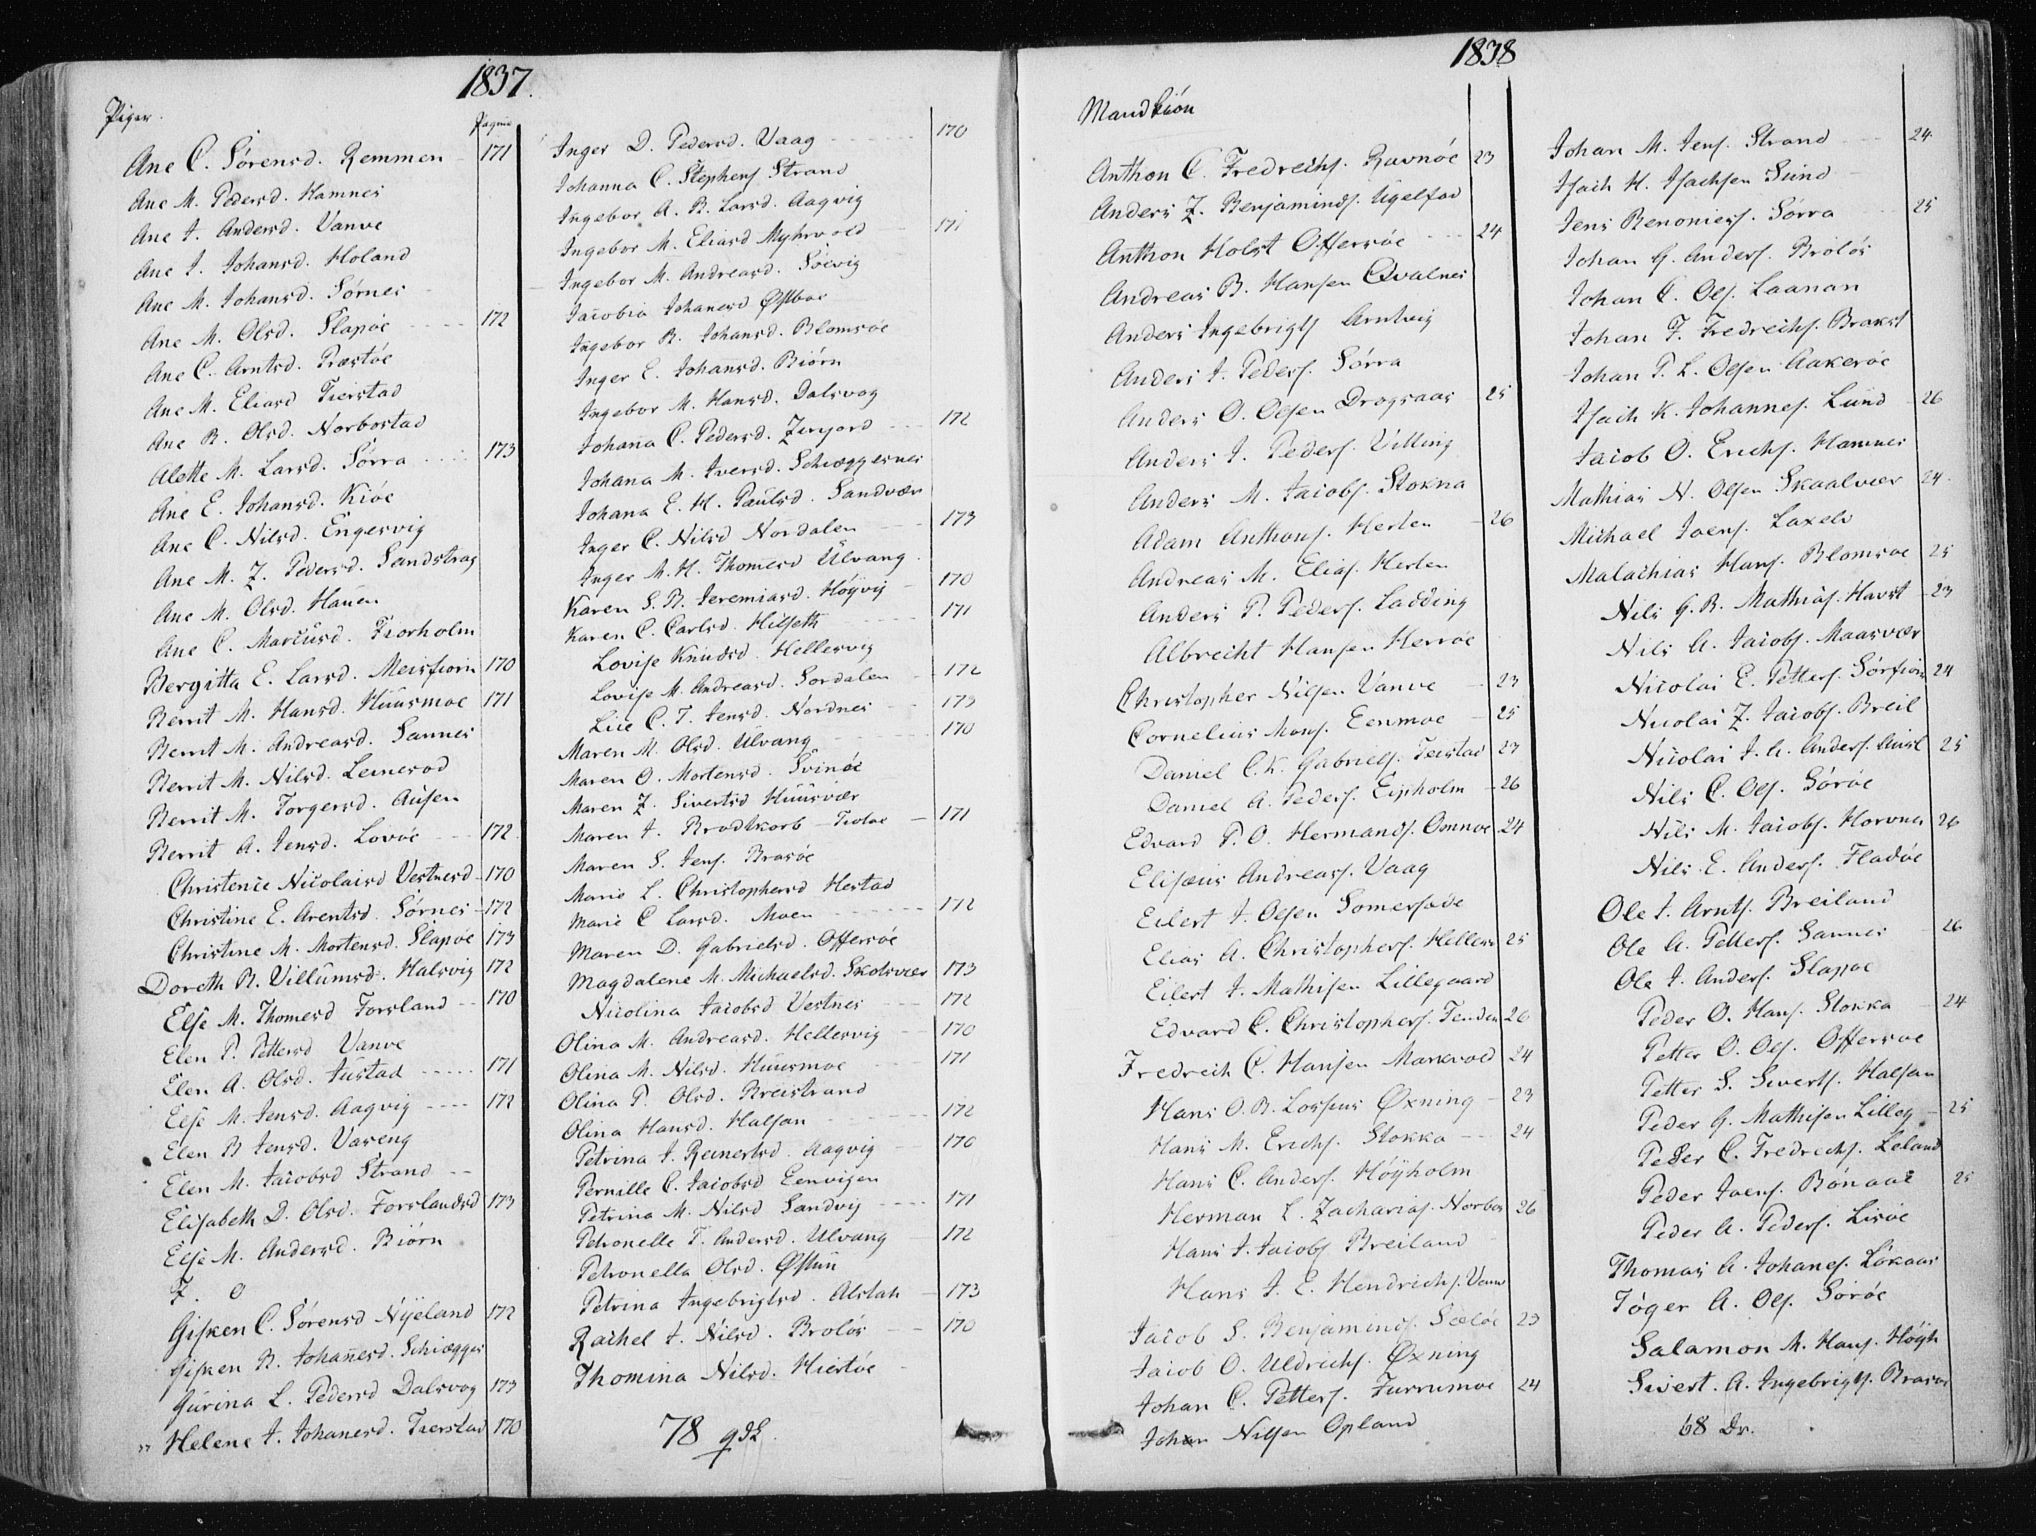 1837.
Piger. Pagina
Ane C. Sörensd. Remmen 171
Ane M. Pedersd. Hamnes
Ane J. Andersd. Vanve
Ane J. Johansd. Holand
Ane M. Johansd. Sörnes
Ane M. Olsd. Slapöe 172
Ane C. Arntsd. Præstöe
Ane M. Eliasd Tierstad
Ane R. Olsd. Norbostad
Alette M. Larsd. Sörra 173
Ane E. Johansd. Kiöe
Ane C. Nilsd. Engesvig
Ane M. Z. Pedersd. Sandstrag
Ane M. Olsd. Hauen
Ane C. Marcusd. Fiorholm
Bergitta E. Larsd. Meisfiorn 170
Berrit M. Hansd. Huusmoe 171
Berrit M. Andreasd. Sannes
Berrit M. Nilsd. Leinesod
Berrit M. Torgersd. Ausen
Berrit A. Jensd. Lovöe 172
Christence Nicolaisd Vestnesd 170
Christine E. Arentsd. Sörnes 172
Christine M. Mortensd. Slapöe 173
Doreth R. Villumsd. Halsvig 172
Else M. Thomesd Forsland 170
Elen P. Pettersd Vanve
Elen A. Olsd. Tustad 171
Else M. Jensd. Aagvig 172
Elen B Jensd. Vaseng
Elen M. Jacobsd Strand
Elisabeth D. Olsd. Forslandsd 173
Else M. Andersd. Biörn
F. O
Gisken C. Sörensd Nyeland 172
Gisken B. Johannesd. Schiægges
Gurina L. Pedersd Dalsvog 173
" Helene J. Johanesd. Tierstad 170
Inger D. Pedersd. Vaag 170
Johanna C. Stephens. Strand
Ingebor A. B. Larsd. Aagvig
Ingebor M. Eliasd Myhrvold 171
Ingebor M. Andreasd. Söevig
Jacobia Johanesd Østboe
Ingebor B. Johansd. Blomsöe
Inger E. Johansd. Biörn
Ingebor M. Hansd. Dalsvog
Johana C. Pedersd. Zenjord 172
Johana M. Iversd. Schiæggesnes
Johana E. H. Paulsd. Sandvær
Inger C. Nilsd Nordalen 173
Inger M. H. Thomesd Ulvang
Karen S. B. Jeremiasd. Höyvig 170
Karen C. Carlsd. Hilseth 171
Lovise Knudsd. Hellesvig
Lovise M. Andreasd. Sordalen 172
Lice C. T. Jensd. Nordnes 173
Maren M. Olsd. Ulvang 170
Maren O. Mortensd. Svinöe
Maren Z. Sivertsd Huusvær
Maren J. Brodtkorb Tiotoe 171
Maren S. Jens. Brasöe
Marie L. Christophersd Hestad
Marie C Larsd. Moen 172
Maren D. Gabrielsd. Offersöe
Magdalene M. Michaelsd. Skolsvær 173
Nicolina Jacobsd Vestnes 172
Olina M. Andreasd. Hellesvig 170
Olina M. Nilsd. Huusmoe 171
Olina P. Olsd. Breistrand
Olina Hansd. Halsan 172
Petrina J. Reinertsd. Aagvig 170
Pernille C. Jacobsd Eenvigen
Petrina M. Nilsd Sandvig 171
Petronelle T. Andersd. Ulvang 172
Petronella Olsd. Østun
Petrina Ingebrigtsd. Alstah 173
Rachel J. Nilsd. Brolös 170
Thomina Nilsd. Hiestöe
78
1838
Mandkiön
Anthon C. Fredrichs. Ravnöe 23
Anders Z. Benjamins. Ugelfad
Anthon Holst Offersöe 24
Andreas B. Hansen Qvalnes
Anders Ingebrigts Arntvig
Anders J. Peders. Sörra
Anders O. Olsen Drogsaas 25
Anders J. Peders. Villing
Anders M. Jacobs. Stokna
Adam Anthons. Herlen 26
Andreas M. Elias. Herlen
Anders P. Peders. Ladding
Albrecht Hansen Herröe
Christopher Nilsen Vanve 23
Cornelius Mons. Eenmoe 25
Daniel C. K. Gabriels. Teistad 23
Daniel A. Peders. Eipholm 26
Edvard P. O. Hermands. Omnoe 24
Elisæus Andreass. Vaag
Eilert J. Olsen Somersade
Elias A. Christophers. Helles 25
Eilert J. Mathisen Lillegaard
Edvard C. Christophers. Tenden 26
Fredrech C. Hansen Markvoed 24
Hans O. B. Lossius Øxning 23
Hans M. Erichs. Stokka 24
Hans C. Anders. Höyholm
Herman L. Zacharias. Norbos 26
Hans J. Jacobs Breiland
Hans J. E. Hendrichs. Vanv
Jacob S. Benjamins. Sælöe 23
Jacob O. Uldrichs. Øxning
Johan C. Petters. Furrumoe 24
Johan Nilsen Opland
Johan M. Jens. Strand 24
Isach H. Isachsen Sund
Jens Benonies. Sörra 25
Johan G. Anders. Brolös
Johan C. Ols. Laanan
Johan F. Fredrechs. Brakst
Johan P. L. Olsen Aakeröe
Isach K. Johannes. Lund 26
Jacob O. Erichs. Hamnes
Mathias N. Olsen Skaalvær 24
Michael Joens. Laxelv
Malachias Hans. Blomsoe 25
Nils G. B. Mathias. Havst 23
Nils A. Jacobs. Maasvær
Nicolai E. Petters. Sörfiorn 24
Nicolai Z. Jacobs. Breil
Nicolai J. A. Anders. Aust 25
Nils C. Ols. Söröe
Nils M. Jacobs. Horvnes 26
Nils E. Anders. Fladöe
Ole J. Arnts. Breiland
Ole A. Petters. Sannes 26
Ole J. Anders. Slapoe
Peder O. Hans. Stokka 24
Petter O. Ols. Offersoe
Petter S. Siverts. Halsan
Peder G. Mathisen Lilleg 25
Peder C. Fredrechs. Leland
Peder Joens. Bönaae 25
Peder A. Peders. Lisöe
Thomas A. Johanes. Lökaas
Töger A. Ols. Söröe
Salamon M. Hans. Höyh
Sivert. A. Ingebrigts. Brasöe
68 Dr.